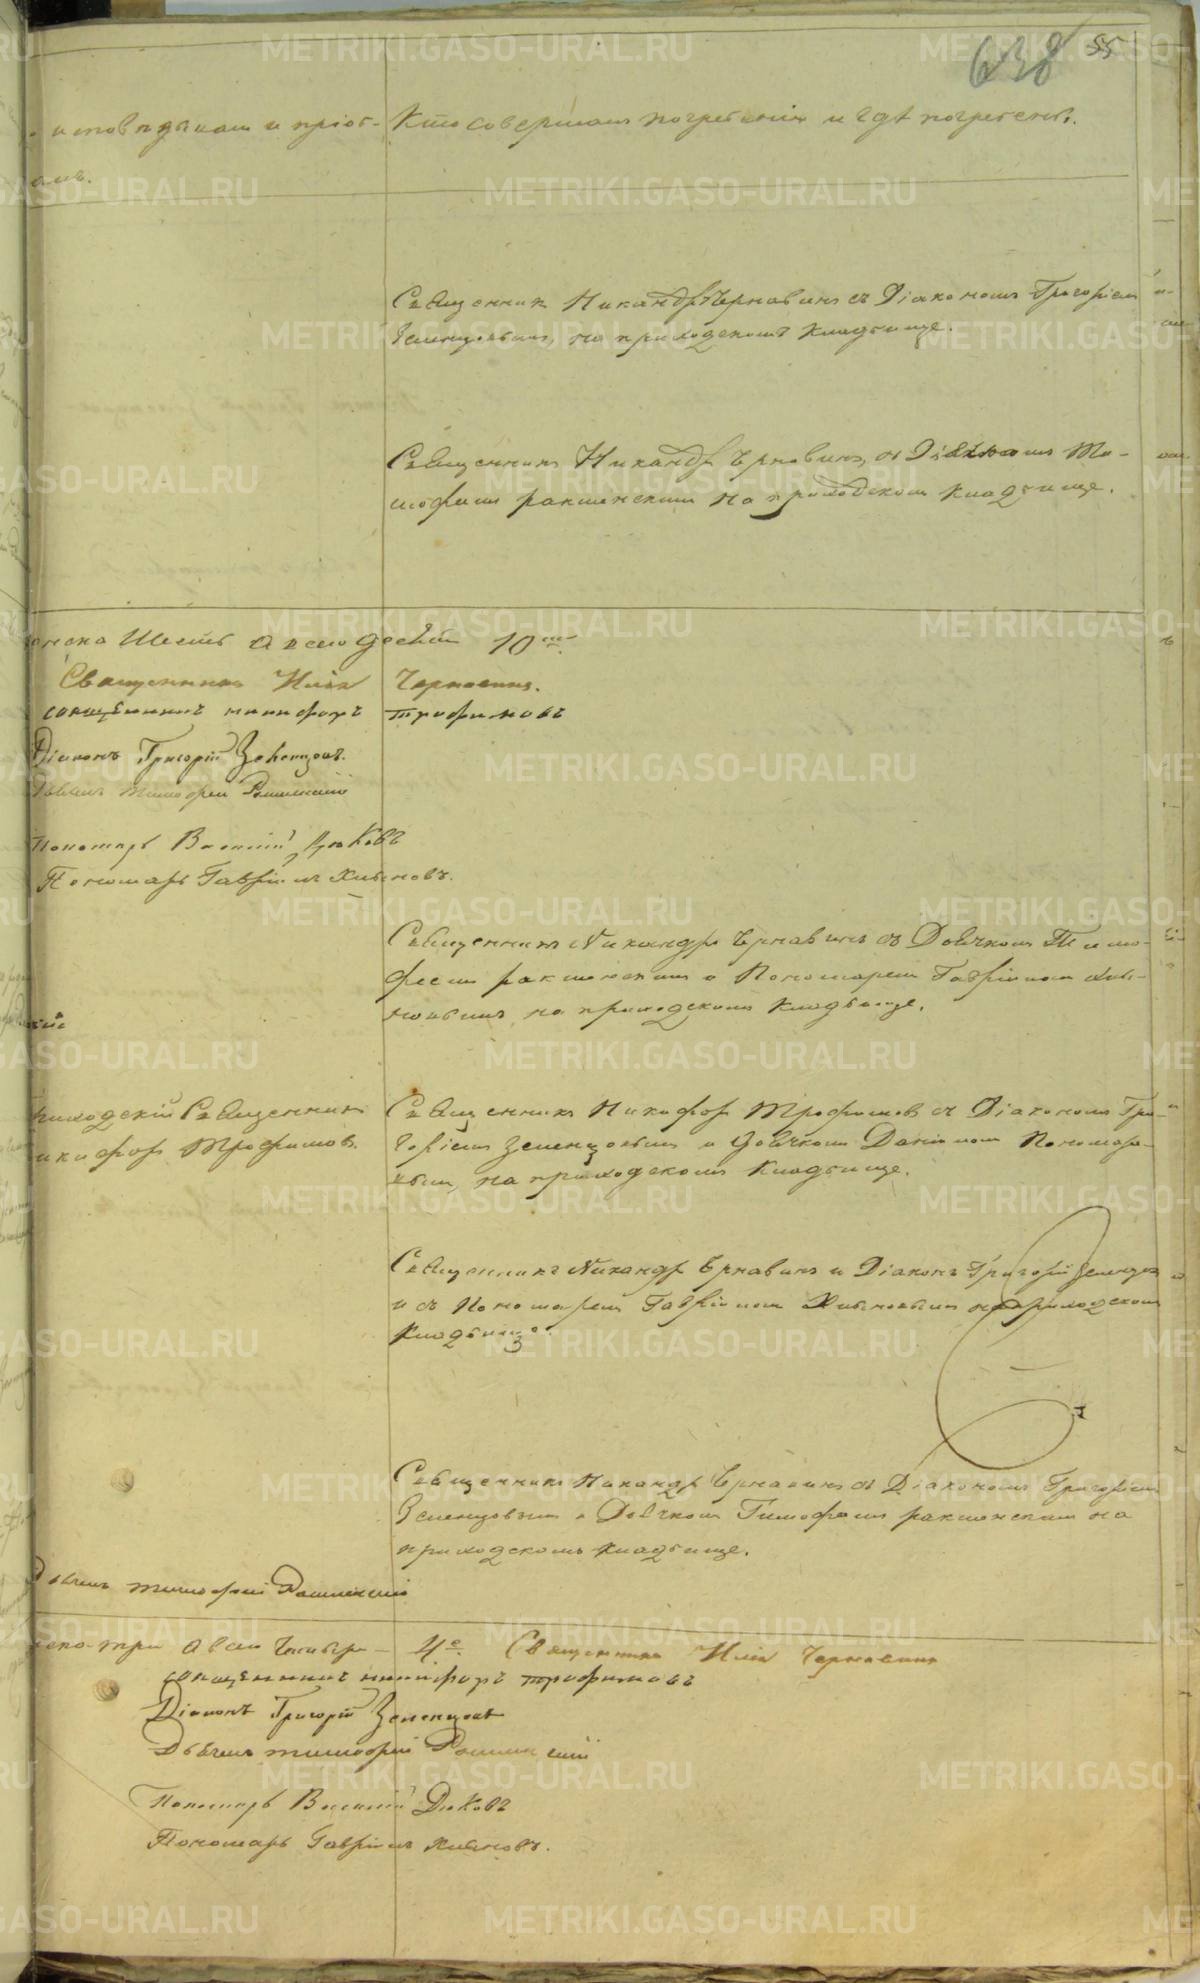 638 55
исповѣдывалъ и пріоб- Кто совершалъ погребеніе и гдѣ погребены.
Священникъ Никандръ Чернавинъ съ Діакономъ Григоріемъ
Зеленцовымъ, на приходскомъ кладбище.
Священникъ Никандръ Чернавинъ, съ Дьячкомъ Ти-
мофеем на приходском кладбище.
женска Шесть А всего десять 10
Священникъ Илія Чернавинъ.
священникъ никифоръ трофимовъ
Діаконъ Григорій Зеленцовъ.
Дьячекъ тимофей
Пономарь Василій Дюковъ
Пономарь Гавріилъ Хлыновъ.
Священникъ Никандръ Чернавинъ съ Дьячкомъ Тимо-
феемъ и Пономаремъ Гавріиломъ Хлы-
новымъ на приходскомъ кладбище.
приходскій Священникъ
Никифоръ Трофимовъ.
Священникъ Никифоръ Трофимовъ съ Діакономъ Гри-
горіемъ Зеленцовымъ и Дьячкомъ Даніиломъ Пономаре-
вымъ, на приходскомъ кладбище.
Священникъ Никандръ Чернавинъ и Діаконъ Григорій Зеленцов
и съ Пономаремъ Гавріиломъ Хлыновымъ на приходскомъ
кладбище.
Священникъ Никандръ Чернавинъ съ Діакономъ Григоріемъ
Зеленцовымъ и Дьячкомъ Тимофеемъ на
приходскомъ кладбище.
Дьячекъ тимофей
женска три А всего Четыре 4е. Священникъ Илія Чернавинъ
священникъ никифоръ трофимовъ
Діаконъ Григорій Зеленцовъ
Дьячекъ тимофей
Пономарь Василій Дюковъ
Пономарь Гавріилъ Хлыновъ.
METRIKI.GASO-URAL.RU